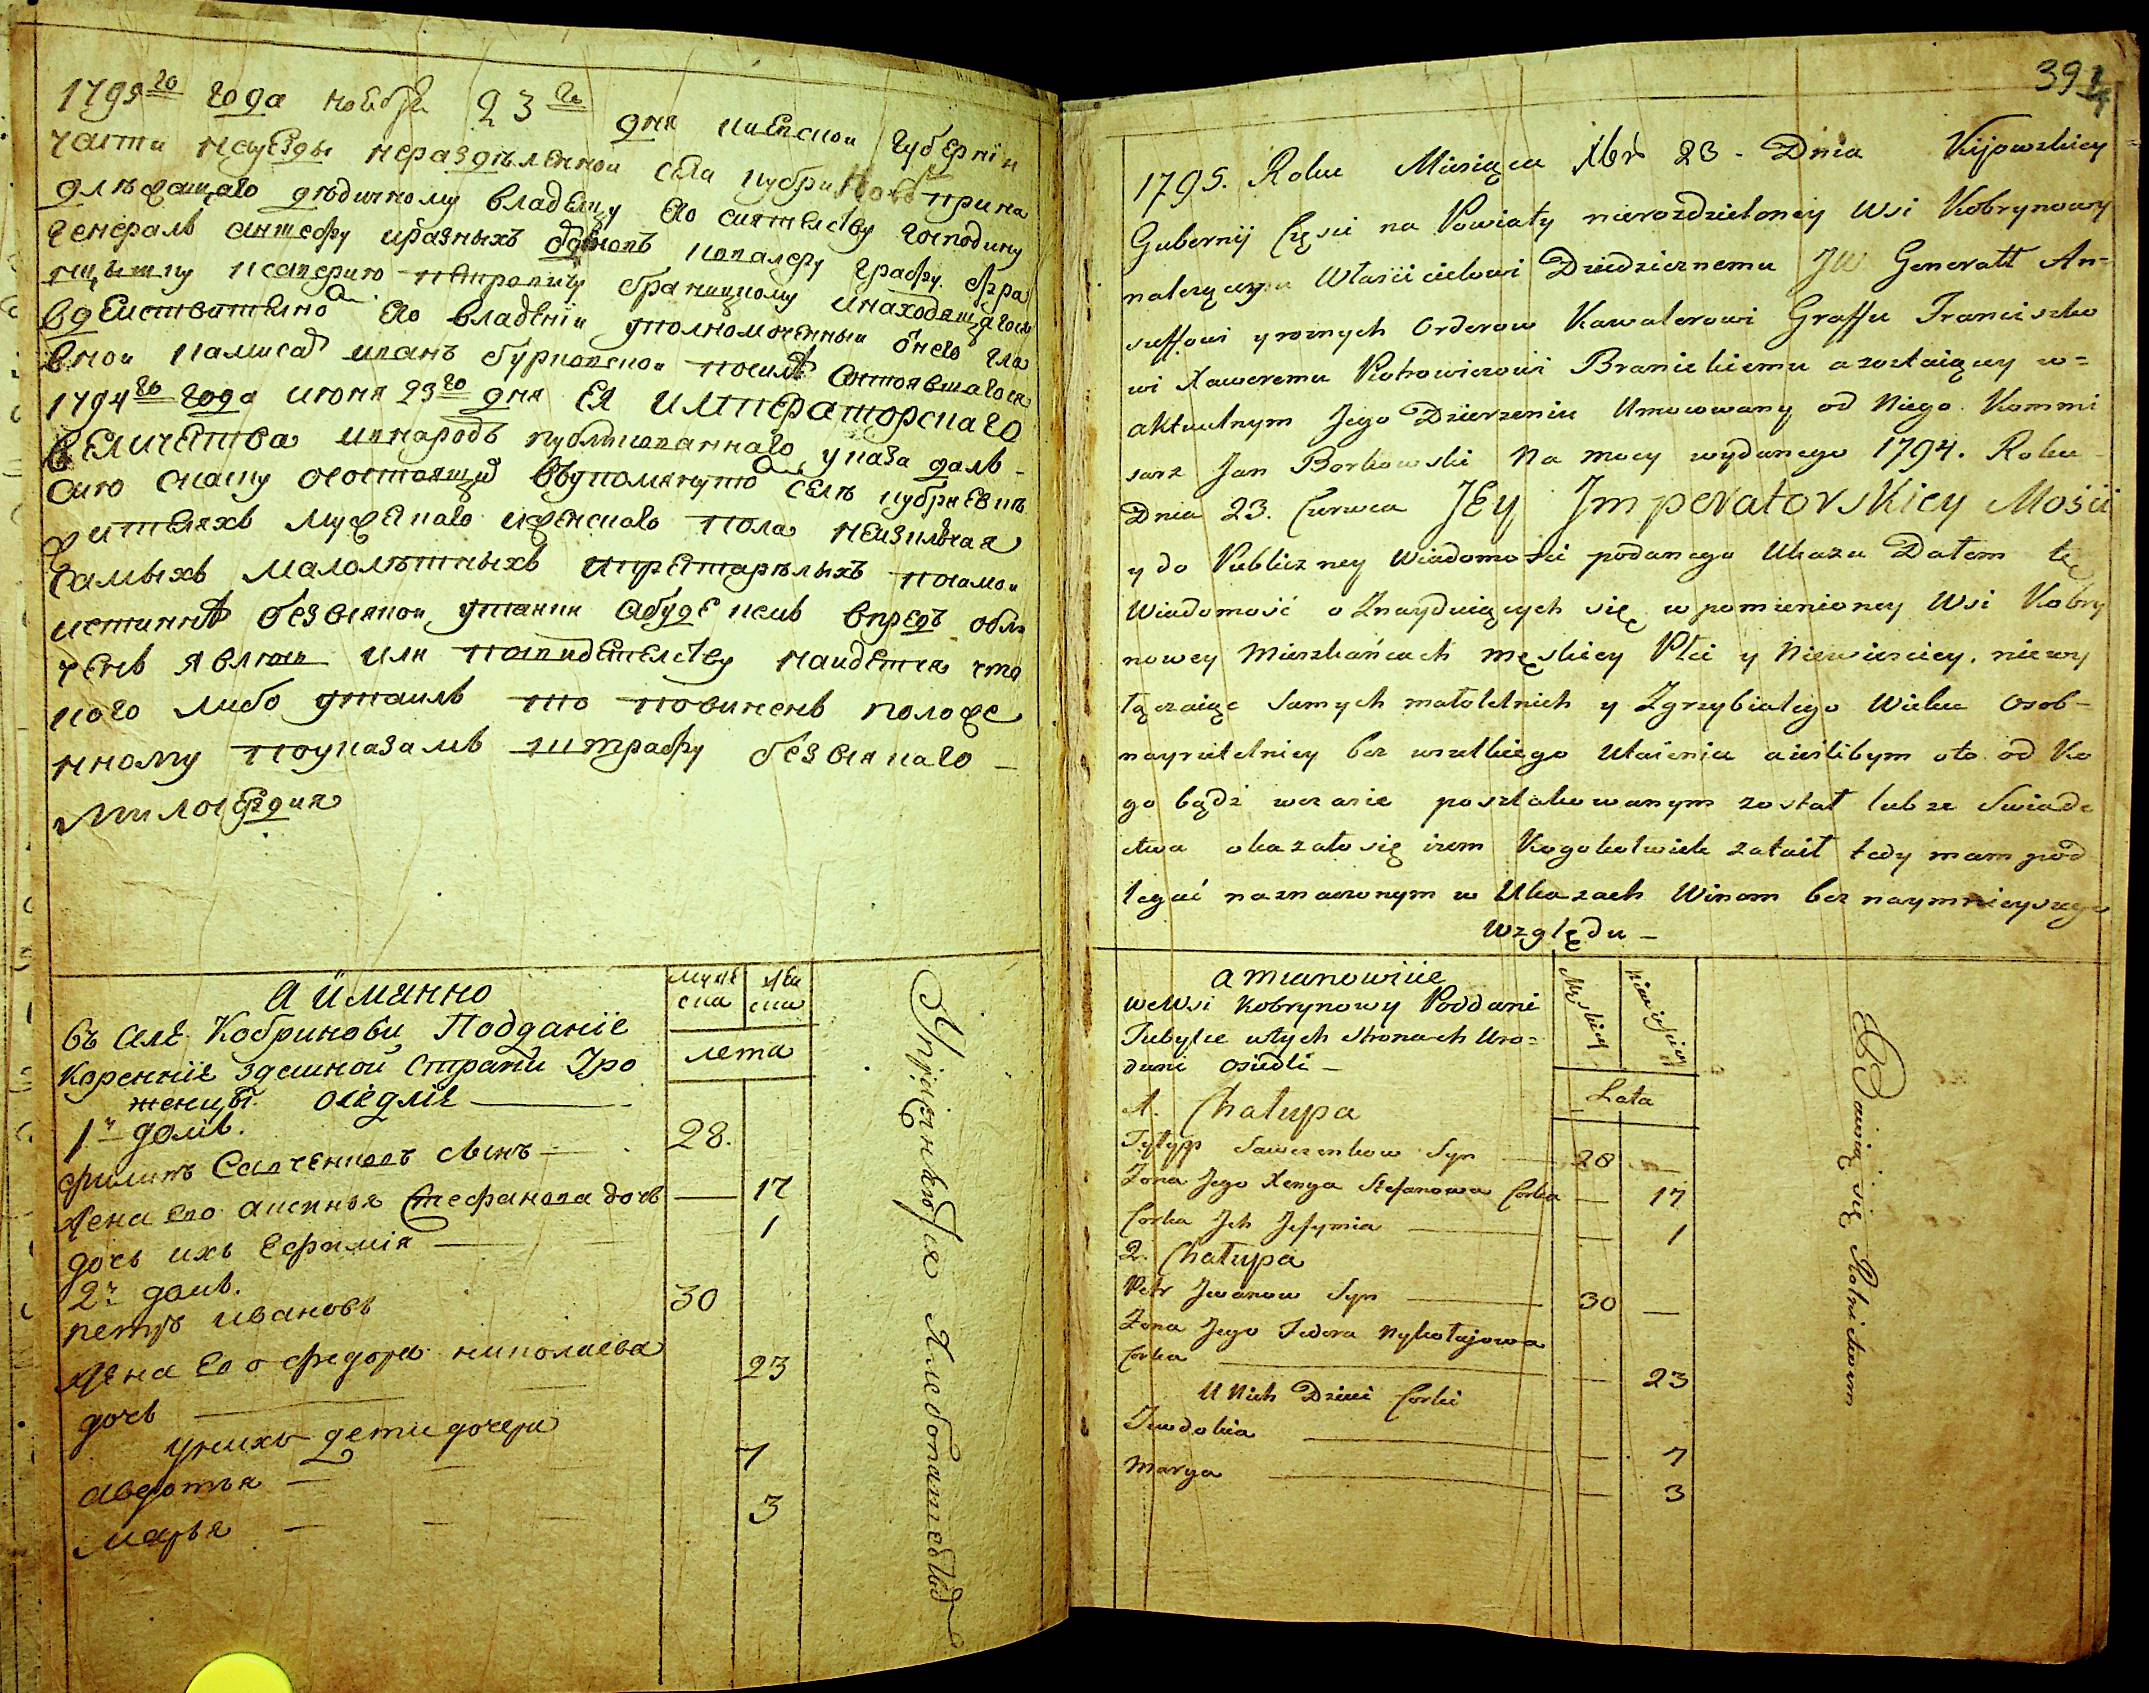 1795го года ноября 23го дня киевской губернїи
части науезды неразделенной села кубриновой прина
длежащаго дедичному владелцу его сиятелству господину
генералъ аншефу иразныхъ орденовъ кавалеру графу фра
нцышку ксаверию петровичу браницкому инаходящагося
вдействителномъ его владенїи уполномоченный онего гла
вной камисар иванъ бурковской посилѣ состоявшагося
1794го года июня 23го дня ея императорскаго
величества ивнародъ публикованнаго указа далъ
сию скаску осостоящихъ въвупомянутомъ селѣ кубриевкѣ
жителяхъ мужескаго иженскаго пола неизключая
самыхъ малолѣтныхъ ипрестарѣлыхъ посамой
истиннѣ безвсякой утайки абуде кемъ впредь обли
ченъ явлюсь или посвидетелству найдется что
кого либо утаилъ то повиненъ положе
нному поуказамъ штрафу безвсякаго
милосердия
а имянно
въ селе КобриновиПодданїе
Кореннїе здешной Страни Уро
женцы оседлїе
мужеска
женска
лета
1й домъ.
филипъ Савченковъ сынъ — 28.
жена его аксинья Стефанова дочь — 17
дочь ихъ Ефимїя — 1
2й домъ.
петръ ивановъ 30
жена его федора николаева
дочь — 23
унихъ дети дочери
авдотья — 7
марья — 3
Упражняются Хлебопашествомъ
394
1795. Roku Miesiąca Xbra 23 - Dnia Kijowskiey
Gubernij Częsci na Powiaty nierozdzieloney Wsi Kobrynowy
nalezącey Własicielowi Dziedzicznemu JW Generałł An=
szeffowi y roznych Orderow Kawalerowi Graffu Franciszko
wi Xaweremu Piotrowiczowi Branickiemu a zostaiącey w=
aktualnym Jego Dzierzeniu Umocowany od Niego Kommi
sarz Jan Borkowski Na mocy wydanego 1794. Roku
Dnia 23. Czerwca JEy Jmperatorskiey Mości
y do Publiczney Wiadomości podanego Ukazu Dałem tę
Wiadomość o Znayduiących się w pomienioney Wsi Kobry
nowey Mieszkańcach męskiey Płci y Niewiesciey. niewy
łączaiąc samych małoletnich y Zgrzybiałego Wieku Osob-
nayrzetelniey bez wszelkiego Utaienia a ieslibym oto od Ko
go bądź wczasie poszlakowanym został lub ze Swiade
ctwa okazało się izem Kogokolwiek zataił tedy mam pod
legać naznaczonym w Ukazach Winom bez naymnieyszego
Względu –
a mianowicie
we Wsi Kobrynowy Poddani
Tubylce wtych stronach Uro=
dzeni Osiedli –
Męskiey
Niewiesciey
Lata
1. Chałupa
Fylypp Sawczenkow Syn — 28 —
Zona Jego Xenya Stefanowa Corka — 17
Corka Jch Jefymia — 1
2. Chałupa
Petr Jwanow Syn — 30 —
Zona Jego Fedora Nykołajowa
Corka — 23
U Nich Dzieci Corki
Juwdokia — 7
Marya — 3
Bawią się Rolnictwem